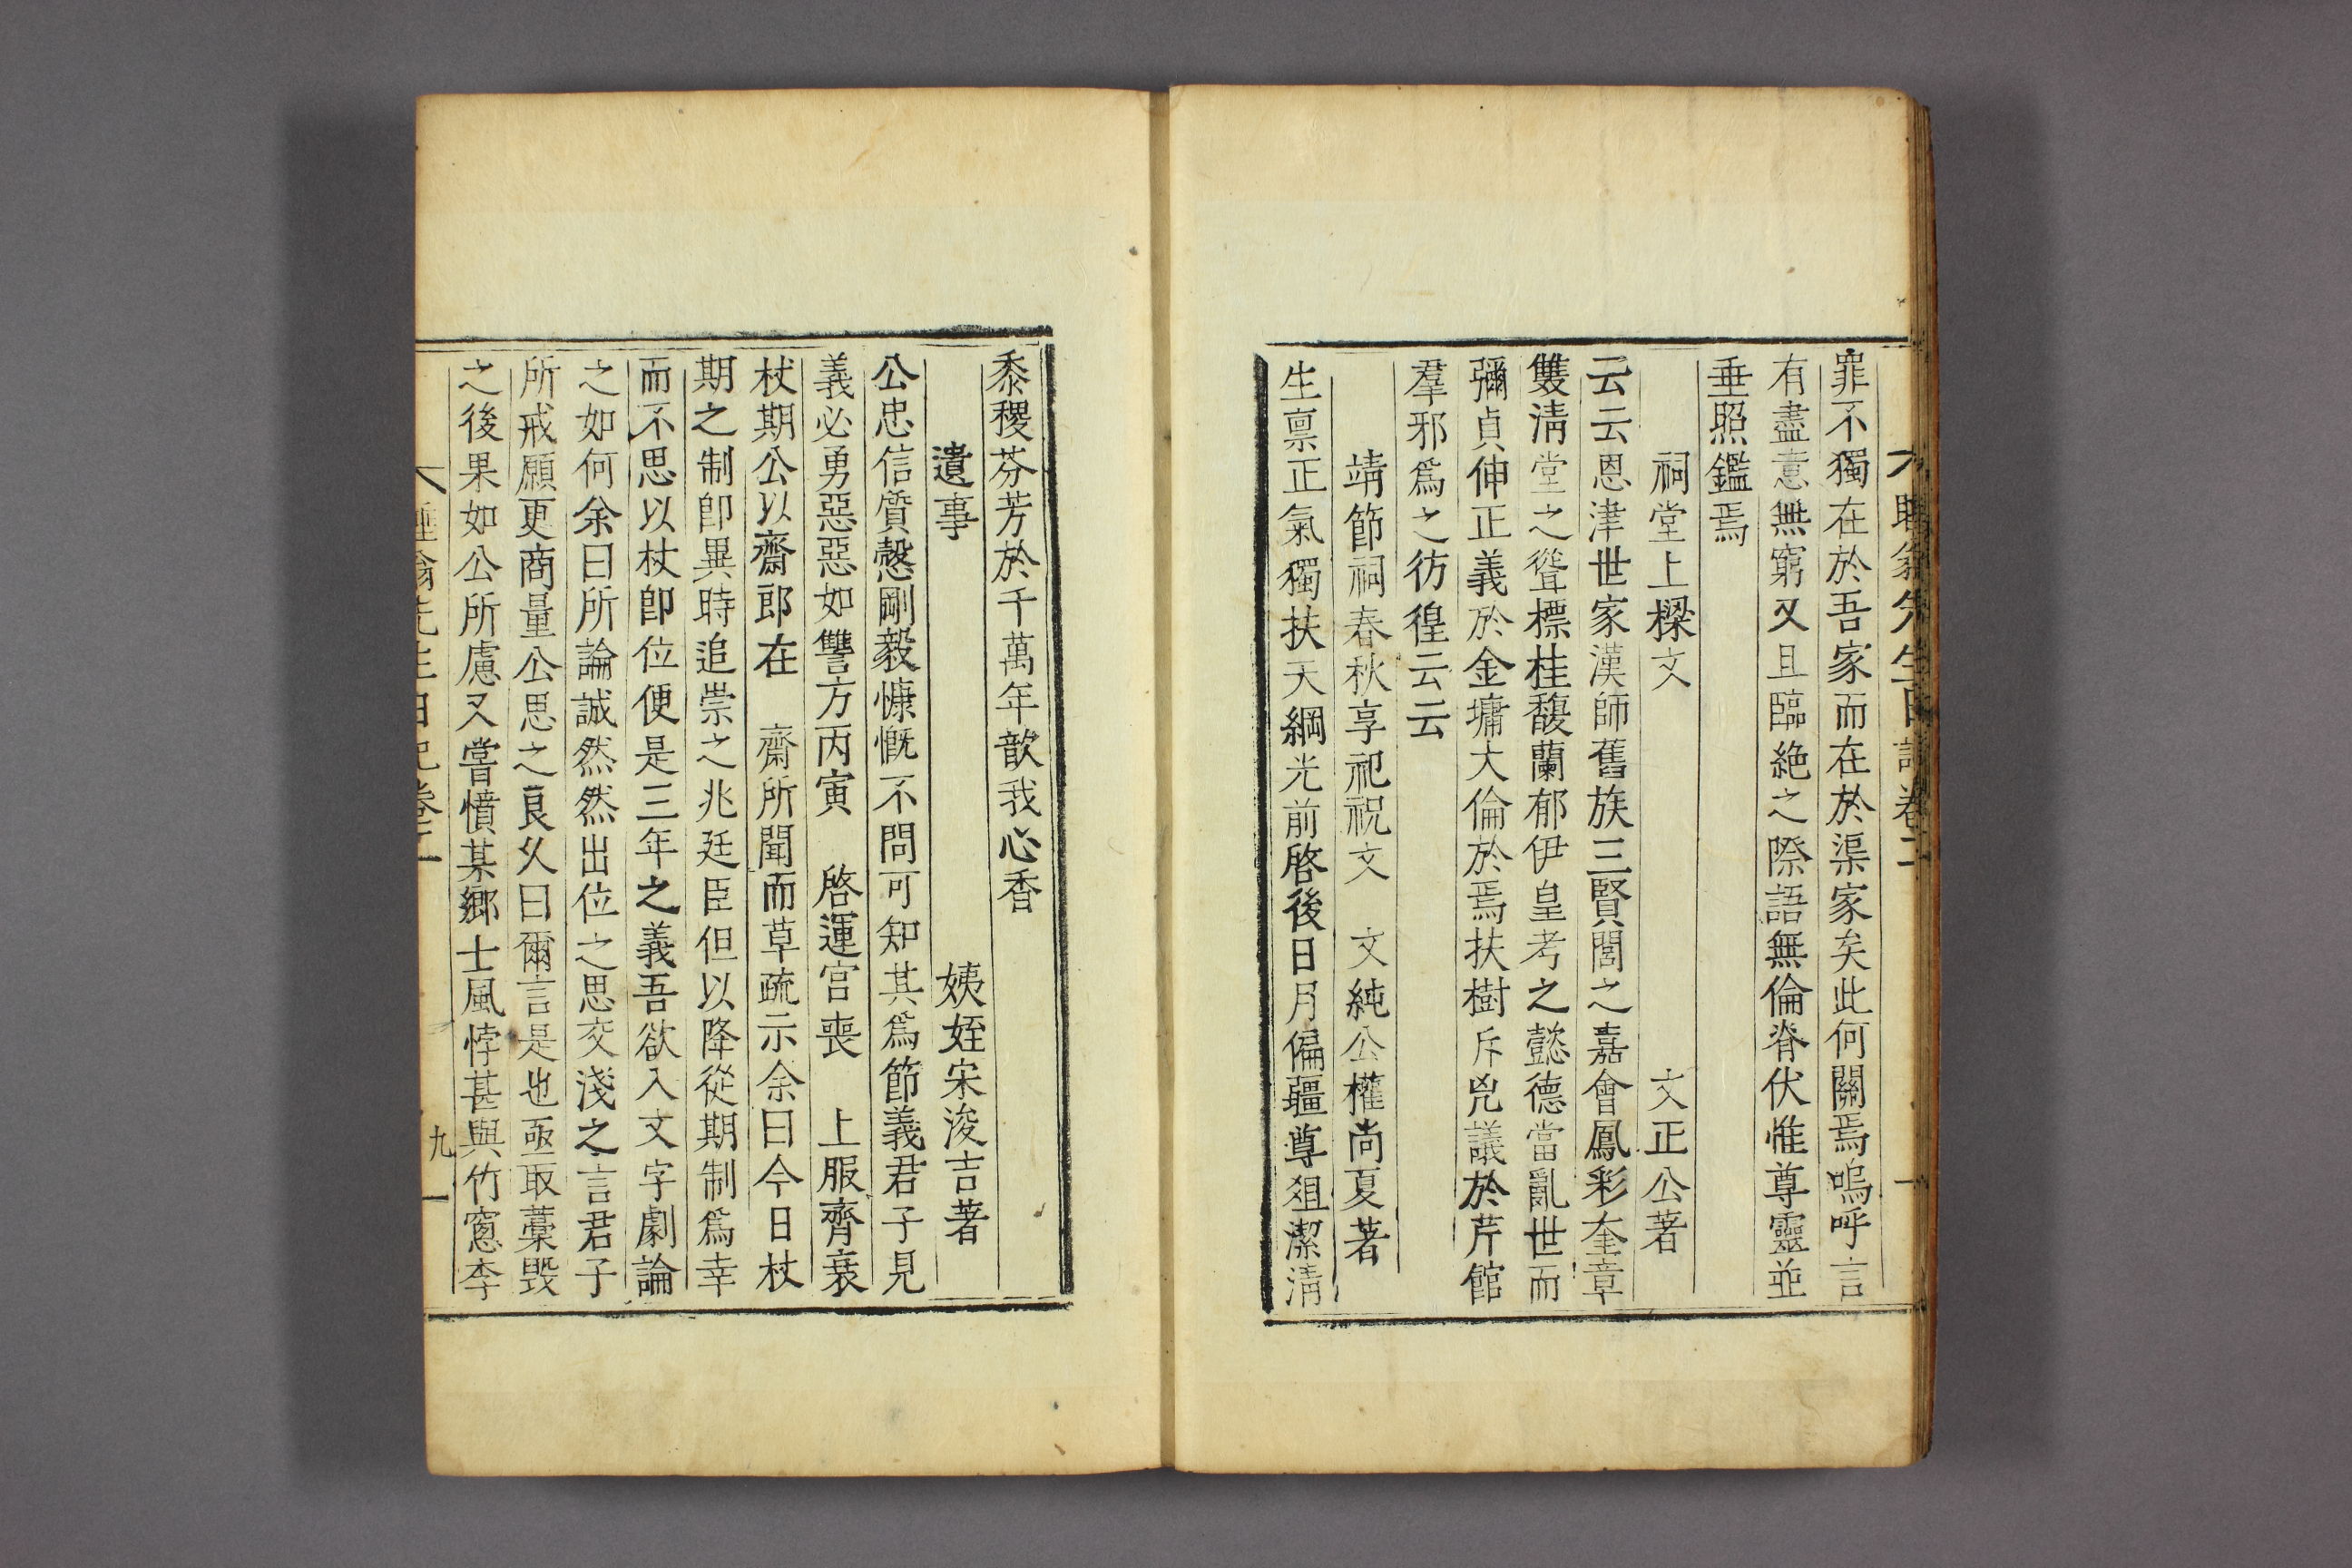 罪不獨在於吾家而在於渠家矣此何關焉嗚呼言
有盡意無窮又且臨絶之際語無倫脊伏惟尊靈並
垂照鑑焉
祠堂上樑文 文正公著
云云恩津世家漢師舊族三賢閭之嘉會鳳彩奎章
雙淸堂之聳標桂馥蘭郁伊皇考之懿德當亂世而
彌貞伸正義於金墉大倫於焉扶樹斥兇議於芹館
羣邪爲之彷徨云云
靖節祠春秋享祀祝文 文純公權尚夏著
生禀正氣獨扶天綱光前啓後日月偏疆尊俎潔淸
黍稷芬芳於千萬年歆我心香
遺事 姨姪宋浚吉著
公忠信質慤剛毅慷慨不問可知其爲節義君子見
義必勇惡惡如讐方丙寅 啓運宮喪 上服齊衰
杖期公以齋郎在 齋所聞而草疏示余曰今日杖
期之制卽異時追崇之兆廷臣但以降從期制爲幸
而不思以杖卽位便是三年之義吾欲入文字劇論
之如何余曰所論誠然然出位之思交淺之言君子
所戒願更商量公思之良久曰爾言是也亟取藁毀
之後果如公所慮又嘗憤某鄕士風悖甚與竹窓李
翁先生日記卷二 九